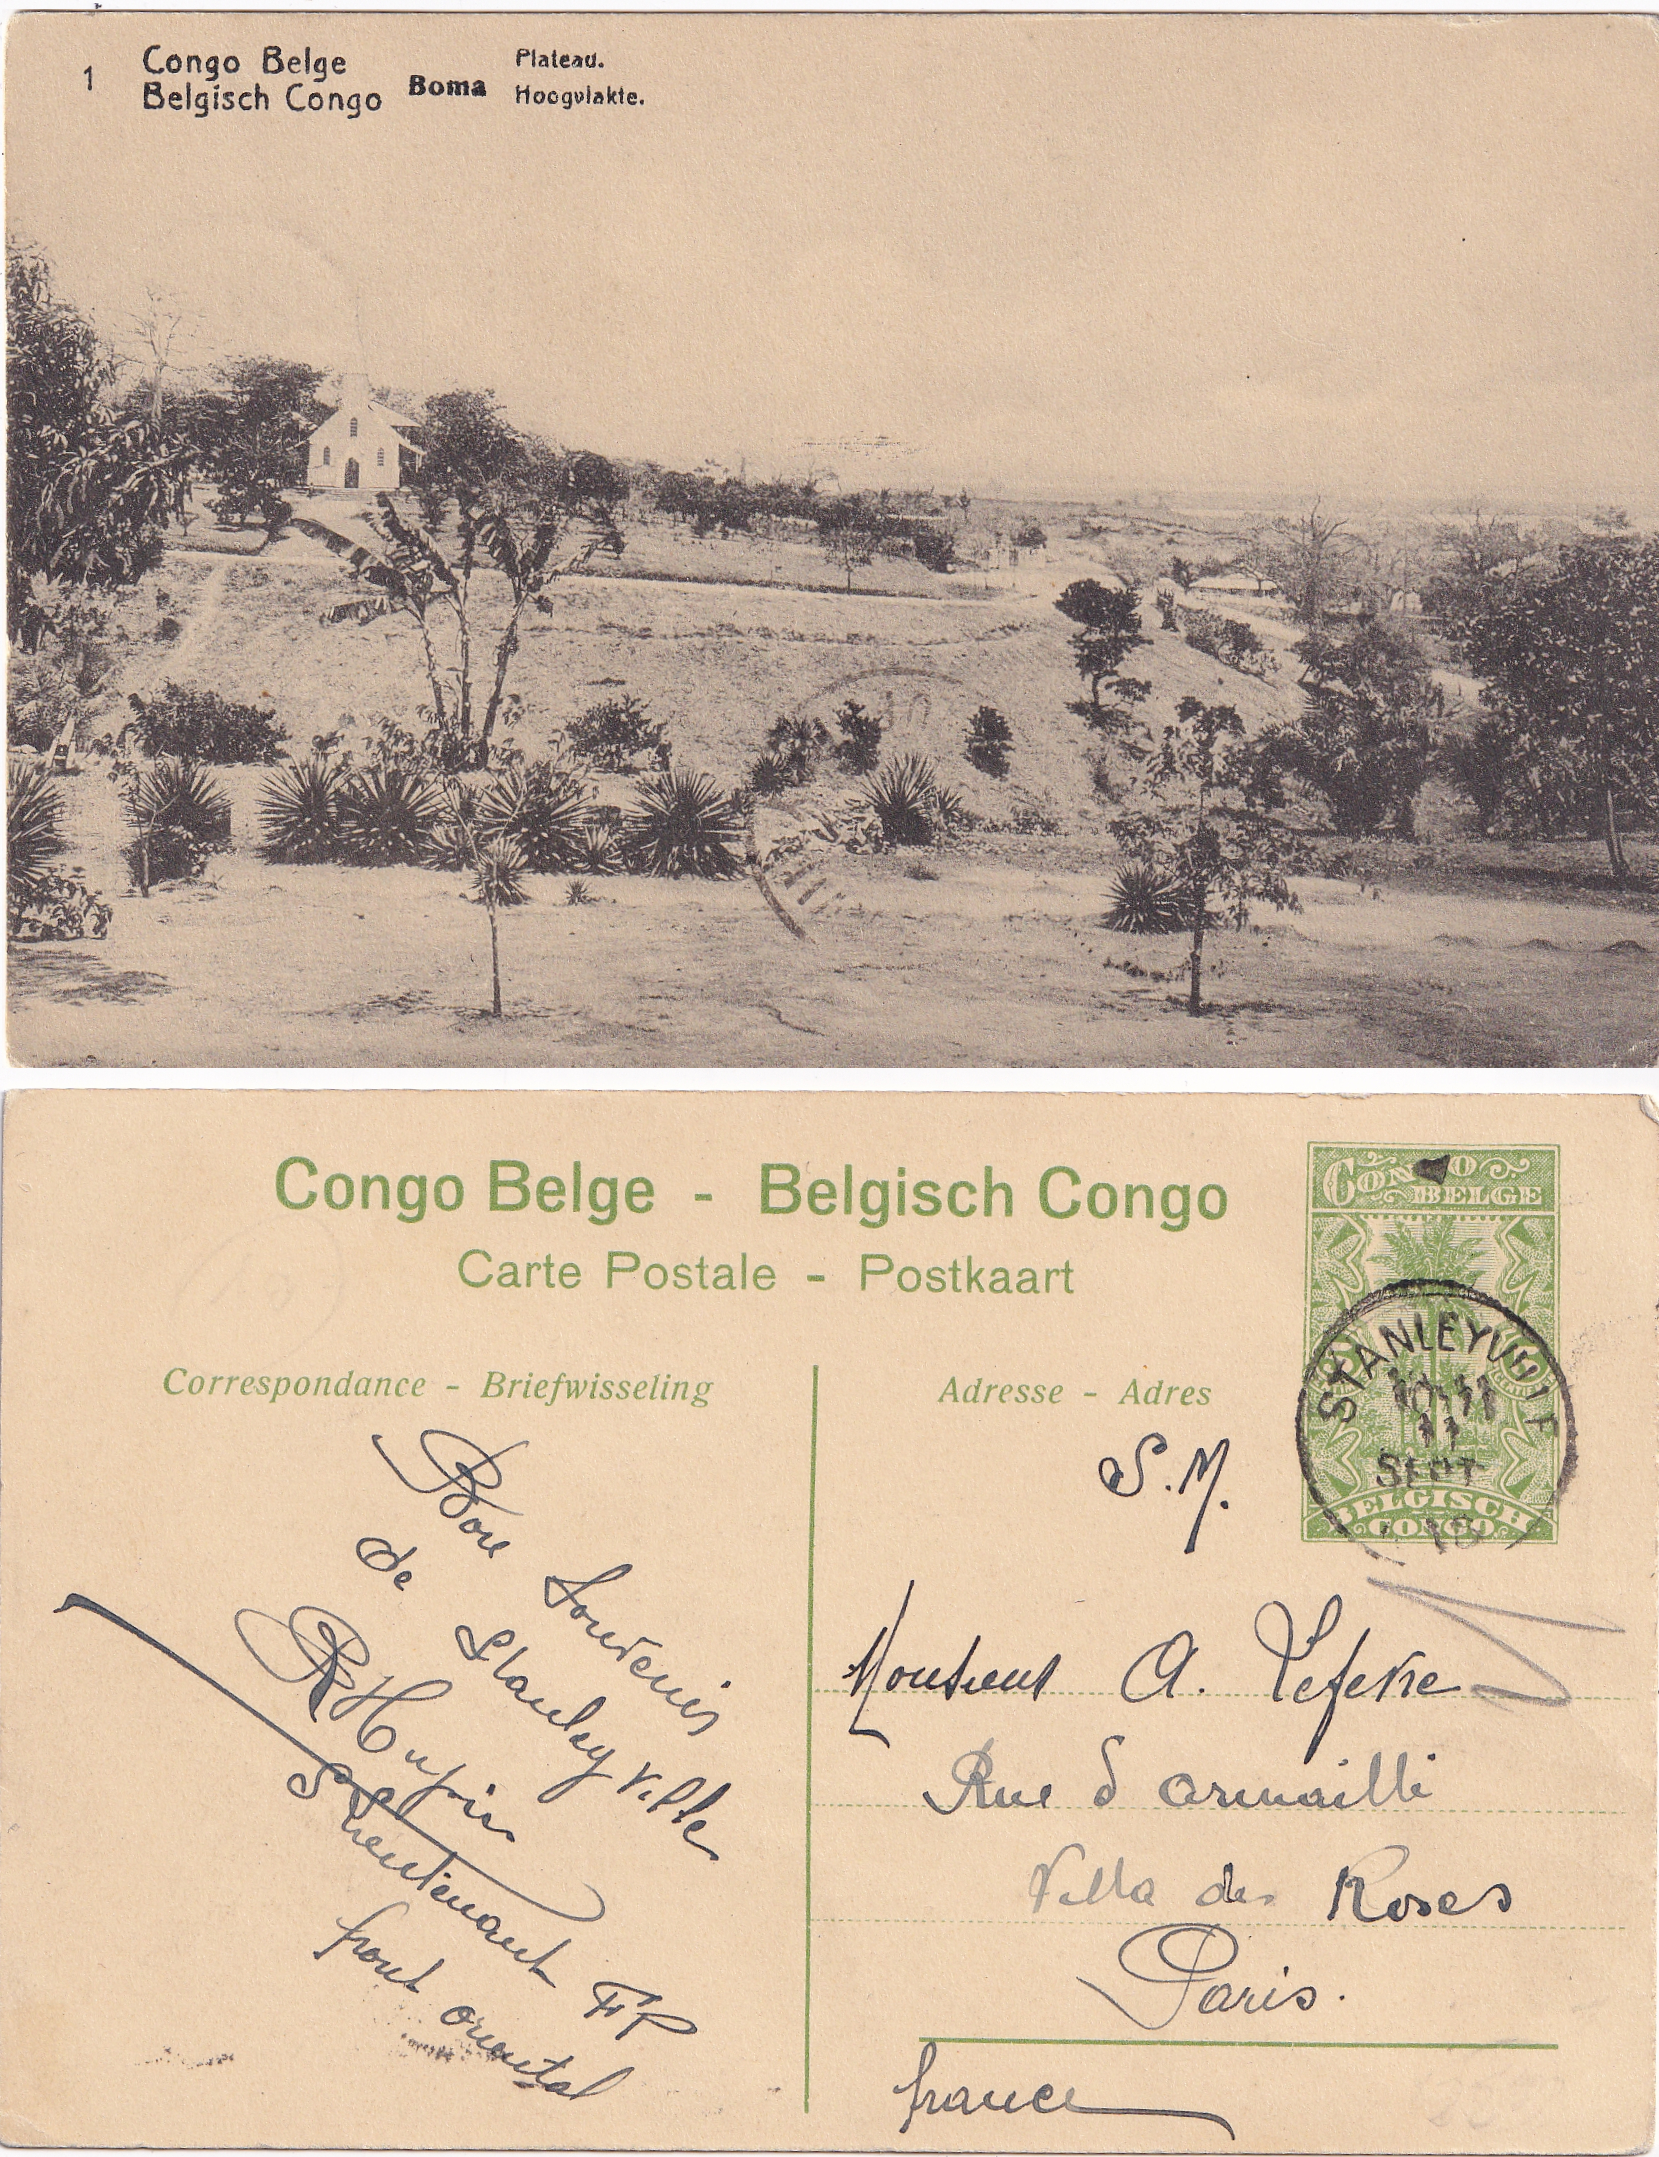 1
Congo Belge
Belgisch Congo
Boma
Plateau.
Hoogvlakte.
Congo Belge - Belgisch Congo
Carte Postale - Postkaart
CONGO
BELGE
BELGISCH
CONGO
STANLEYVILLE
11
SEPT
Correspondance - Briefwisseling
Adresse - Adres
Bon Souvenir
de Stanleyville
S Lieutenant FP
front oriental
S. M.
Monsieur A. Lefevre
Rue d'Armaillé
Villa des Roses
Paris.
france